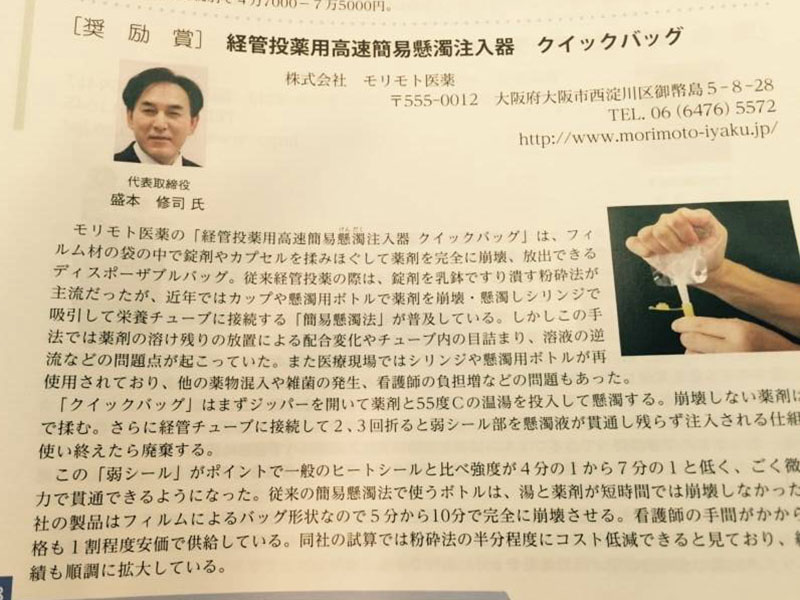 4万7000－7万5000円。
［奨励賞］ 経管投薬用高速簡易懸濁注入器 クイックバッグ
株式会社 モリモト医薬
〒555-0012 大阪府大阪市西淀川区御幣島5－8－28
TEL. 06 (6476) 5572
http://www.morimoto-iyaku.jp/
代表取締役
盛本 修司 氏
モリモト医薬の「経管投薬用高速簡易懸濁注入器 クイックバッグ」は、フィ
ルム材の袋の中で錠剤やカプセルを揉みほぐして薬剤を完全に崩壊、放出できる
ディスポーザブルバッグ。従来経管投薬の際は、錠剤を乳鉢ですり潰す粉砕法が
主流だったが、近年ではカップや懸濁用ボトルで薬剤を崩壊・懸濁しシリンジで
吸引して栄養チューブに接続する「簡易懸濁法」が普及している。しかしこの手
法では薬剤の溶け残りの放置による配合変化やチューブ内の目詰まり、溶液の逆
流などの問題点が起こっていた。また医療現場ではシリンジや懸濁用ボトルが再
使用されており、他の薬物混入や雑菌の発生、看護師の負担増などの問題もあった。
「クイックバッグ」はまずジッパーを開いて薬剤と55度Cの温湯を投入して懸濁する。崩壊しない薬剤は
で揉む。さらに経管チューブに接続して2、3回折ると弱シール部を懸濁液が貫通し残らず注入される仕組
使い終えたら廃棄する。
この「弱シール」がポイントで一般のヒートシールと比べ強度が4分の1から7分の1と低く、ごく微
力で貫通できるようになった。従来の簡易懸濁法で使うボトルは、湯と薬剤が短時間では崩壊しなかった
社の製品はフィルムによるバッグ形状なので5分から10分で完全に崩壊させる。看護師の手間がかから
格も1割程度安価で供給している。同社の試算では粉砕法の半分程度にコスト低減できると見ており、
績も順調に拡大している。